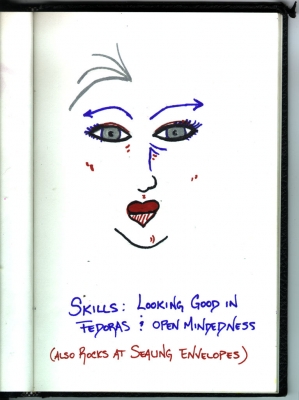 SKILLS: LOOKING GOOD IN
FEDORAS & OPEN MINDEDNESS
(ALSO ROCKS AT SEALING ENVELOPES)